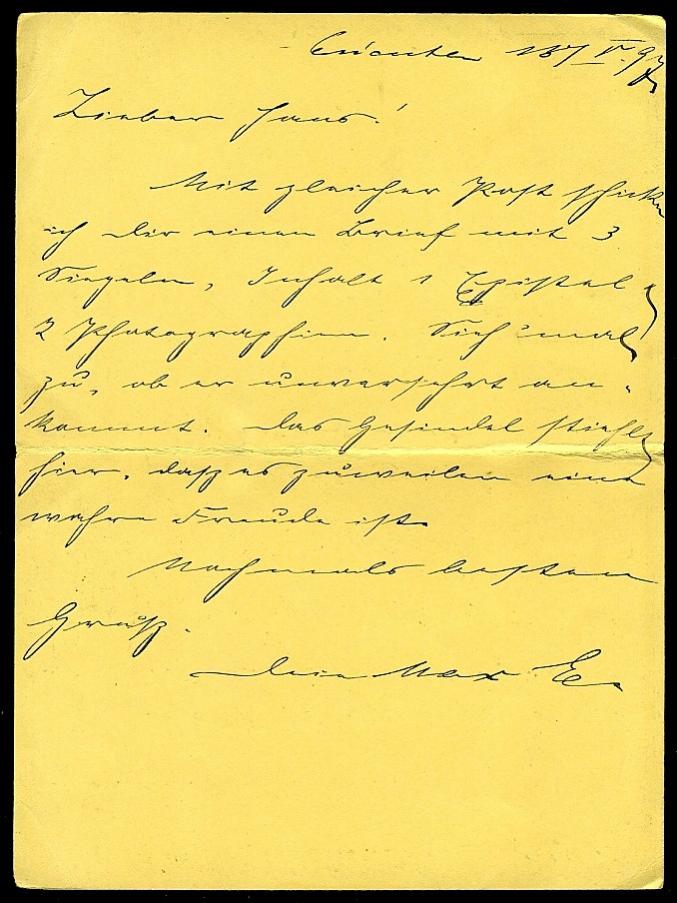 15/V. 97.
Lieber Hans!
Mit gleicher Post schicke
ich dir einen Brief mit 3
Siegeln, Inhalt 1 Epistel
2 Photographien. Sieh 'mal
zu, ob er unversehrt an-
kommt. Das Gesindel stiehlt
hier, daß es zuweilen eine
wahre Freude ist.
Nochmals besten
Gruß.
Dein Max E.